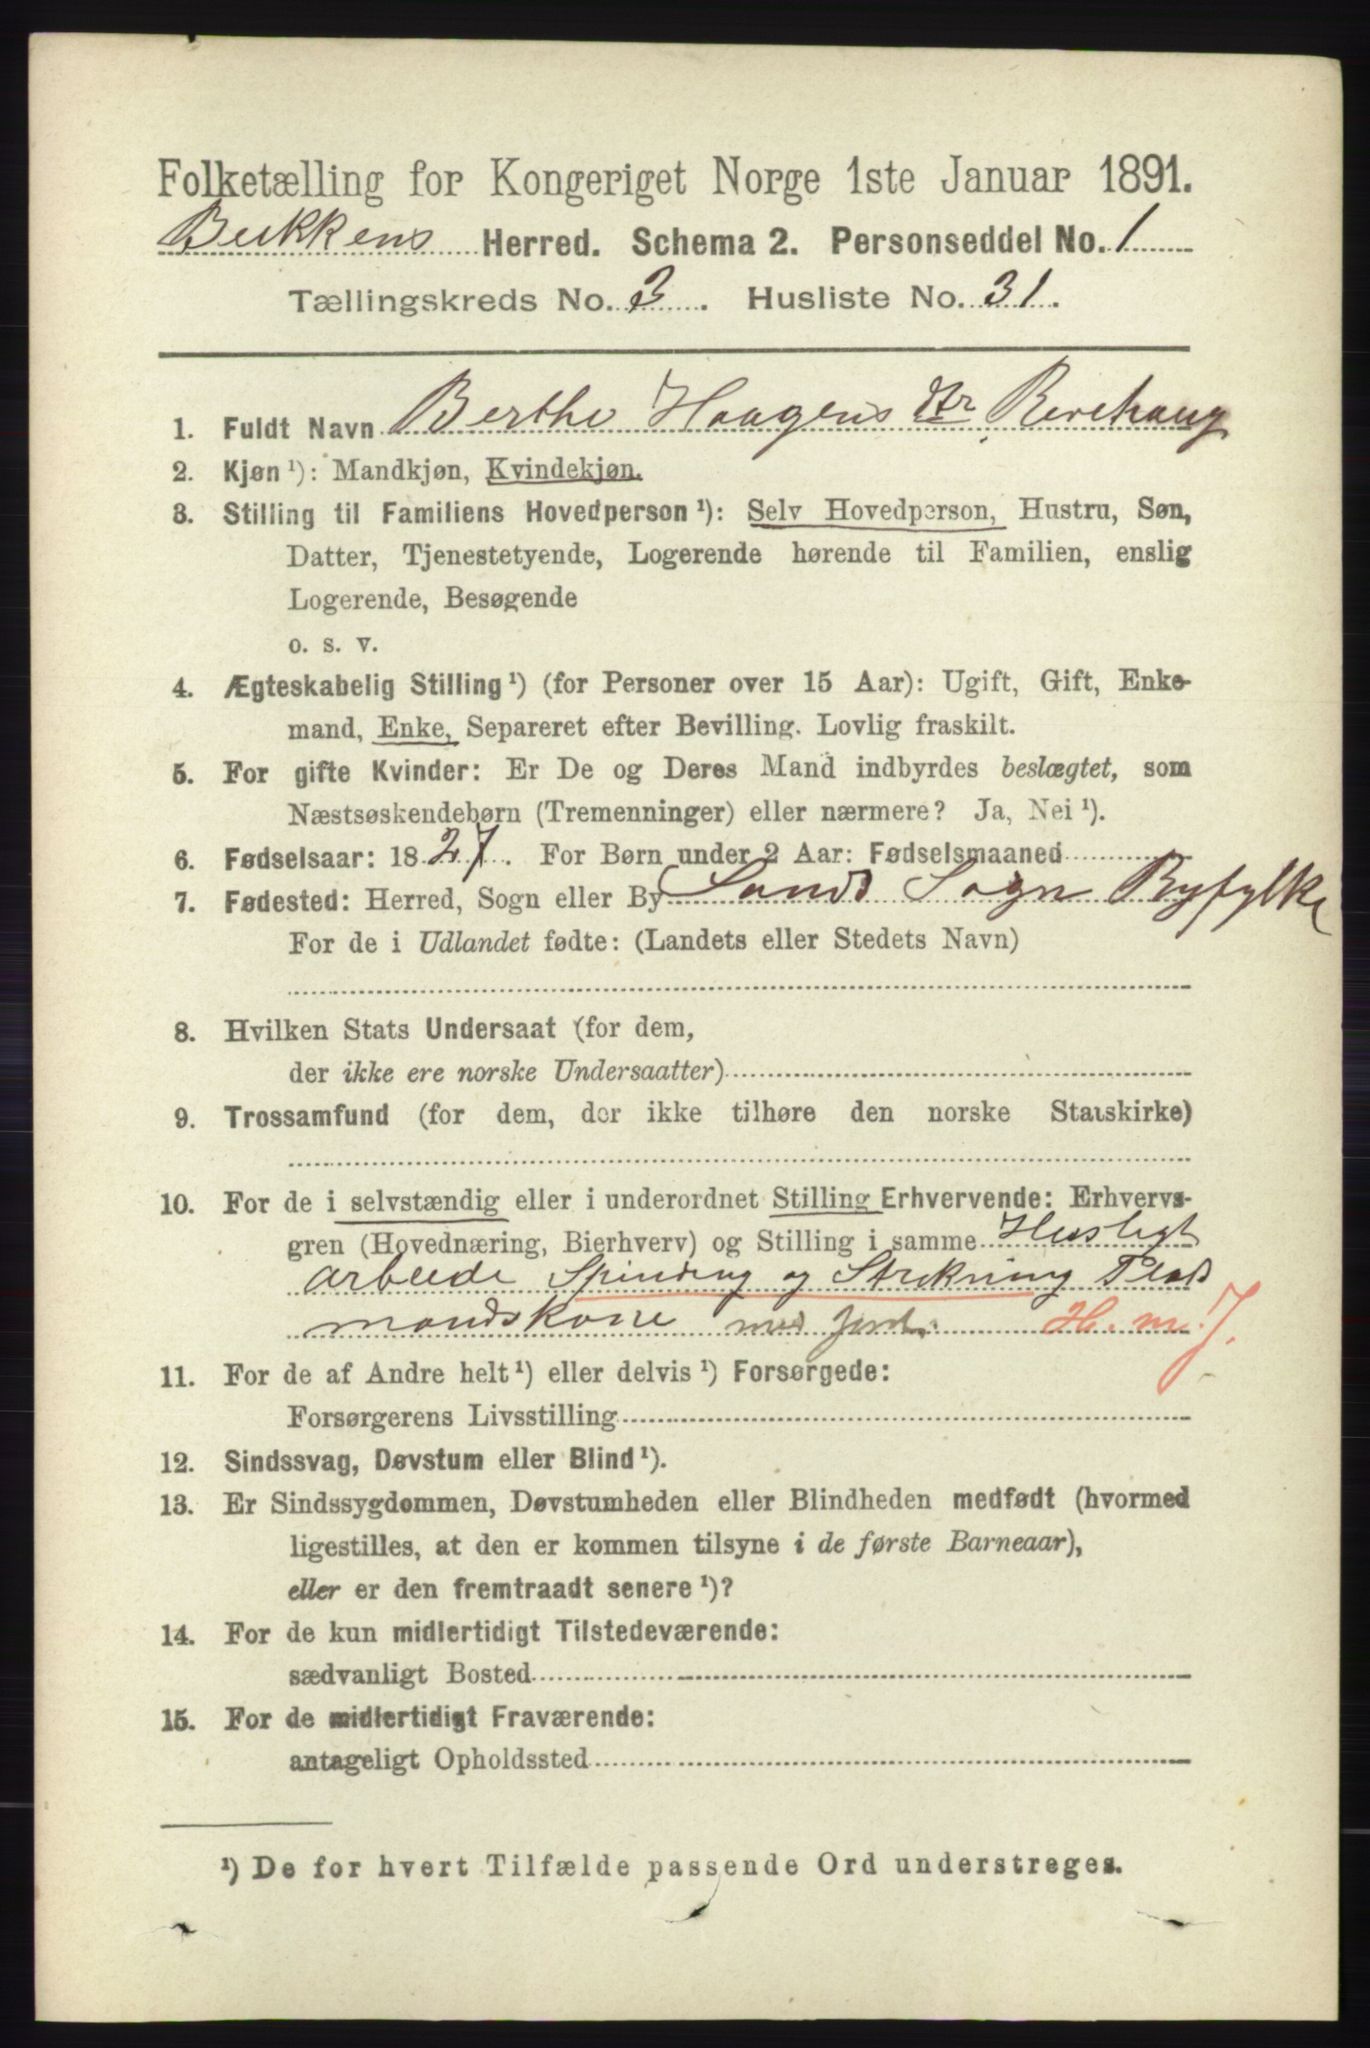 Folketælling for Kongeriget Norge 1ste Januar 1891.
Bukkens Herred. Schema 2. Personseddel No. 1
Tællingskreds No. 3. Husliste No. 31.
1. Fuldt Navn Berthe Haagens dtr Revehaug
2. Kjøn ¹): Mandkjøn, Kvindekjøn.
3. Stilling til Familiens Hovedperson ¹): Selv Hovedperson, Hustru, Søn,
Datter, Tjenestetyende, Logerende hørende til Familien, enslig
Logerende, Besøgende
o. s. v.
4. Ægteskabelig Stilling ¹) (for Personer over 15 Aar): Ugift, Gift, Enke-
mand, Enke, Separeret efter Bevilling. Lovlig fraskilt.
5. For gifte Kvinder: Er De og Deres Mand indbyrdes beslægtet, som
Næstsøskendebørn (Tremenninger) eller nærmere? Ja, Nei ¹).
6. Fødselsaar: 1827. For Børn under 2 Aar: Fødselsmaaned
7. Fødested: Herred, Sogn eller By Sands Sogn Ryfylke
For de i Udlandet fødte: (Landets eller Stedets Navn)
8. Hvilken Stats Undersaat (for dem,
der ikke ere norske Undersaatter)
9. Trossamfund (for dem, der ikke tilhøre den norske Statskirke)
10. For de i selvstændig eller i underordnet Stilling Erhvervende: Erhvervs-
gren (Hovednæring, Bierhverv) og Stilling i samme Husligt
arbeide Spinding og Strikning Plads
mandskone med jord. H. m. J.
11. For de af Andre helt ¹) eller delvis ¹) Forsørgede:
Forsørgerens Livsstilling
12. Sindssvag, Døvstum eller Blind ¹).
13. Er Sindssygdommen, Døvstumheden eller Blindheden medfødt (hvormed
ligestilles, at den er kommen tilsyne i de første Barneaar),
eller er den fremtraadt senere ¹)?
14. For de kun midlertidigt Tilstedeværende:
sædvanligt Bosted
15. For de midlertidigt Fraværende:
antageligt Opholdssted
¹) De for hvert Tilfælde passende Ord understreges.